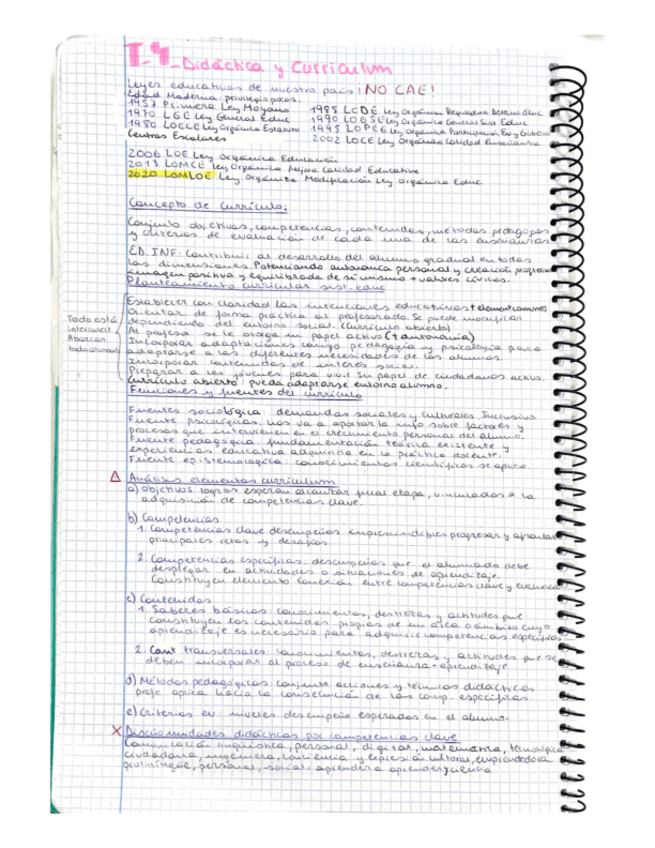 T.4_Didáctica y Curriculum
Leyes educativas de nuestro país ¡NO CAE!
Edad Moderna: privilegio pocos.
1957 Primera Ley Moyano
1985 LODE Ley Orgánica Reguladora Derecho Educ
1970 LGE Ley General Educ
1990 LOGSE Ley Orgánica General Sist Educ
1980 LOECE Ley Orgánica Estatuto
1995 LOPEG Ley Orgánica Participación Ev y Gobierno
Centros Escolares
2002 LOCE Ley Orgánica Calidad Enseñanza
2006 LOE Ley Orgánica Educación
2013 LOMCE Ley Orgánica Mejora Calidad Educativa
2020 LOMLOE Ley Orgánica Modificación Ley Orgánica Educ
Concepto de Currículo:
Conjunto objetivos, competencias, contenidos, métodos pedagógos
y criterios de evaluación de cada una de las enseñanzas
ED. INF: Contribuir al desarrollo del alumno gradual en todas
las dimensiones. Potenciando autonomía personal y creación progresiva
imagen positiva y equilibrada de sí mismo + valores cívicos.
Planteamiento curricular sist. educ
Todo está
interconect.
Abarcan
Establecer con claridad las intenciones educativas + element comunes
Orientar de forma práctica al profesorado. Se puede modificar
dependiendo del entorno social. (Currículo abierto)
Al profesor se le otorga un papel activo (↑ autonomía)
Incorporar adaptaciones campo pedagogía y psicología para
adaptarse a las diferentes necesidades de los alumnos.
Incorporar contenidos de interés social.
Preparar a los jóvenes para vivir su papel de ciudadanos activos.
Currículo abierto: pueda adaptarse entorno alumno.
Funciones y fuentes del currículo
Fuentes sociológica: demandas sociales y culturales. Inclusivo
Fuente psicológicas: nos va a aportar la info sobre factores y
procesos que intervienen en el crecimiento personal del alumno.
Fuente pedagógica: fundamentación teórica existente y
experiencias educativa adquirida en la práctica docente.
Fuente epistemologica: conocimientos científicos se aplica
Análisis elementos curriculum
a) Objetivos: logros esperan alcanzar final etapa, vinculados a la
adquisición de competencias clave.
b) Competencias
1. Competencias clave desempeños imprescindibles progresar y afrontar
principales retos y desafíos
2. Competencias específicas: desempeños que el alumnado debe
desplegar en actividades o situaciones de aprendizaje.
Constituyen elemento conexión entre competencias clave y
c) Contenidos
1. Saberes básicos: conocimientos, destrezas y actitudes que
constituyen los contenidos propios de un área o ámbito cuyo
aprendizaje es necesario para adquirir competencias específicas
2. Cont transversales: conocimientos, destrezas y actitudes que se
deben incorporar al proceso de enseñanza-aprendizaje
d) Métodos pedagógicos: conjunto acciones y técnicas didácticas
profe aplica hacia la consecución de las comp. específicas.
e) Criterios ev: niveles desempeño esperados en el alumno.
X Diseño unidades didácticas por competencias clave
Comunicación lingüística, personal, digital, matemática, tecnológica
ciudadana, ingeniería, conciencia y expresión cultural, emprendedora
plurilingüe, personal, social, aprender a aprender